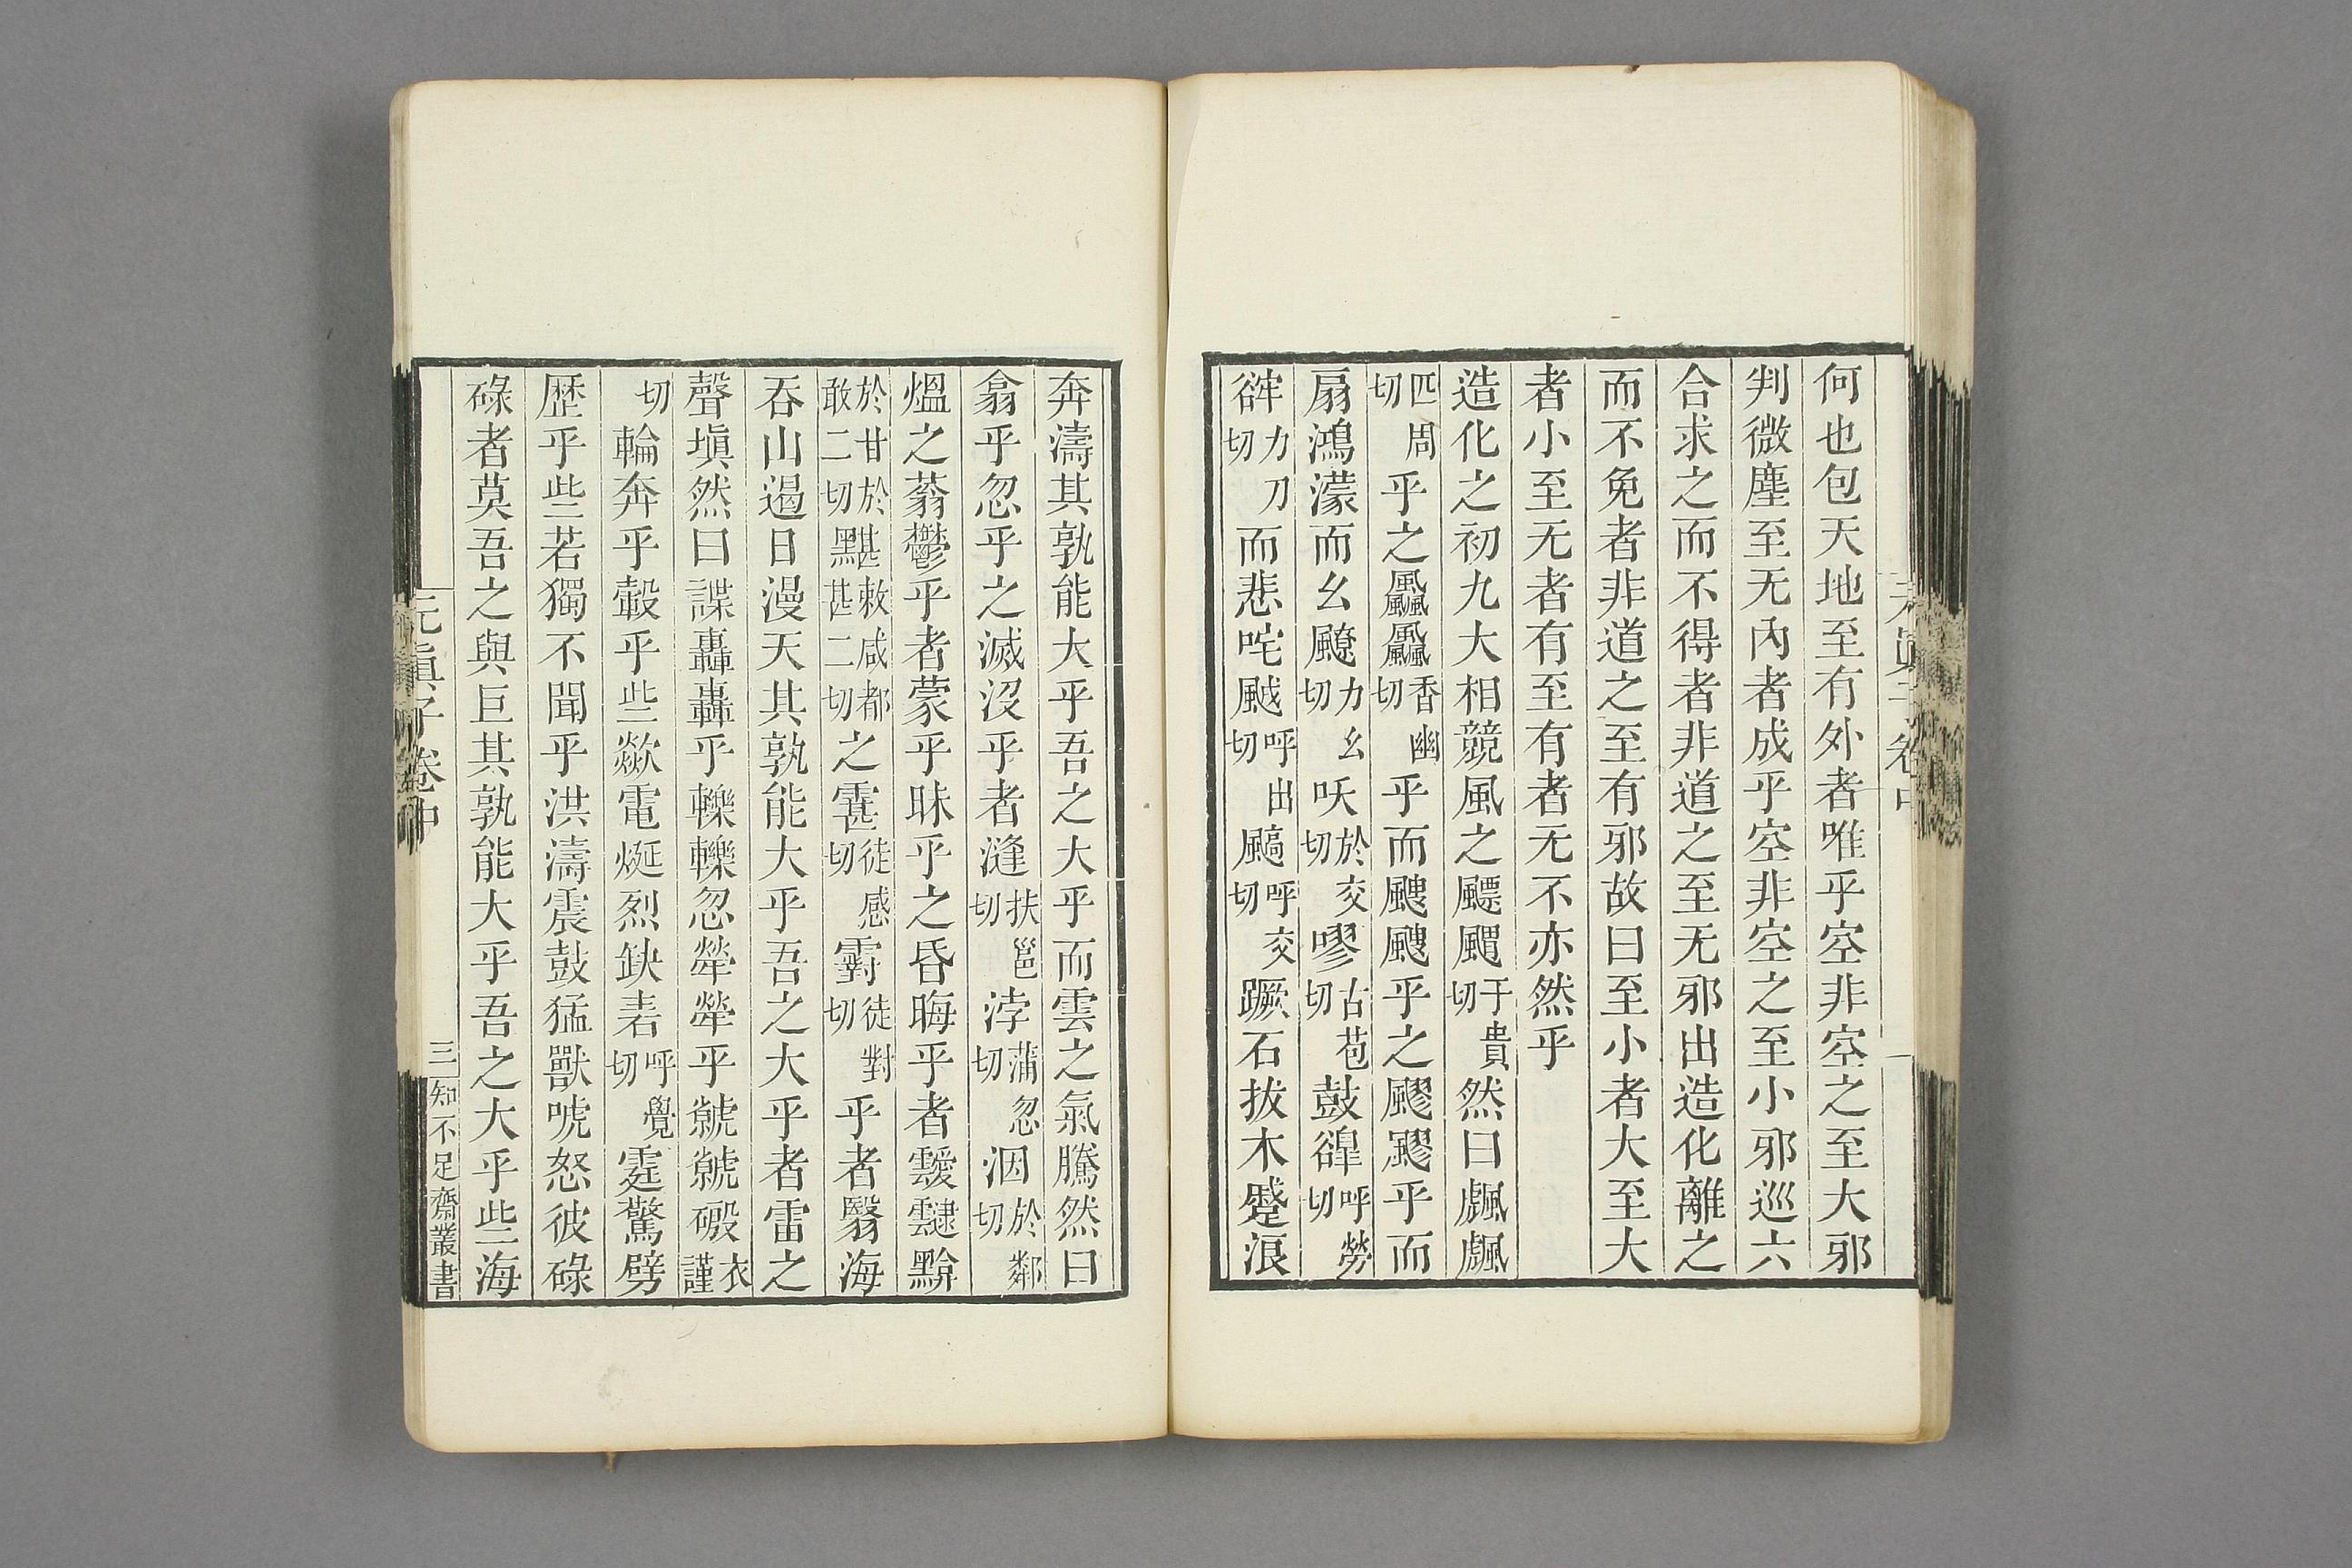 何也包天地至有外者唯乎空非空之至大邪
判微塵至无內者成乎空非空之至小邪巡六
合求之而不得者非道之至无邪出造化離之
而不免者非道之至有邪故曰至小者大至大
者小至无者有至有者无不亦然乎
造化之初九大相競風之飃䬑于貴切然曰颿颿
匹周切乎之飍飍香幽切乎而颼颼乎之飂飂乎而
扇鴻濛而幺飉力幺切吺於交切嘐古苞切鼓呼勞切
力刀切而悲咤䬂呼出切呼交切蹶石拔木蹙浪
奔濤其孰能大乎吾之大乎而雲之氣騰然曰
翕乎忽乎之滅沒乎者漨扶邕切浡蒲忽切洇於鄰切
熅之蓊鬱乎者蒙乎昧乎之昏晦乎者靉靆黭
於甘於敢二切黮敕咸都甚二切之霮徒感切䨴徒對切乎者翳海
吞山遏日漫天其孰能大乎吾之大乎者雷之
聲塡然曰諜轟轟乎轢轢忽犖犖乎虩虩磤衣謹
切輪奔乎轂乎些歘電烻烈缺砉呼覺切霆驚劈
歷乎些若獨不聞乎洪濤震鼓猛獸唬怒彼碌
碌者莫吾之與巨其孰能大乎吾之大乎些海
元眞子卷中
三
知不足齋叢書